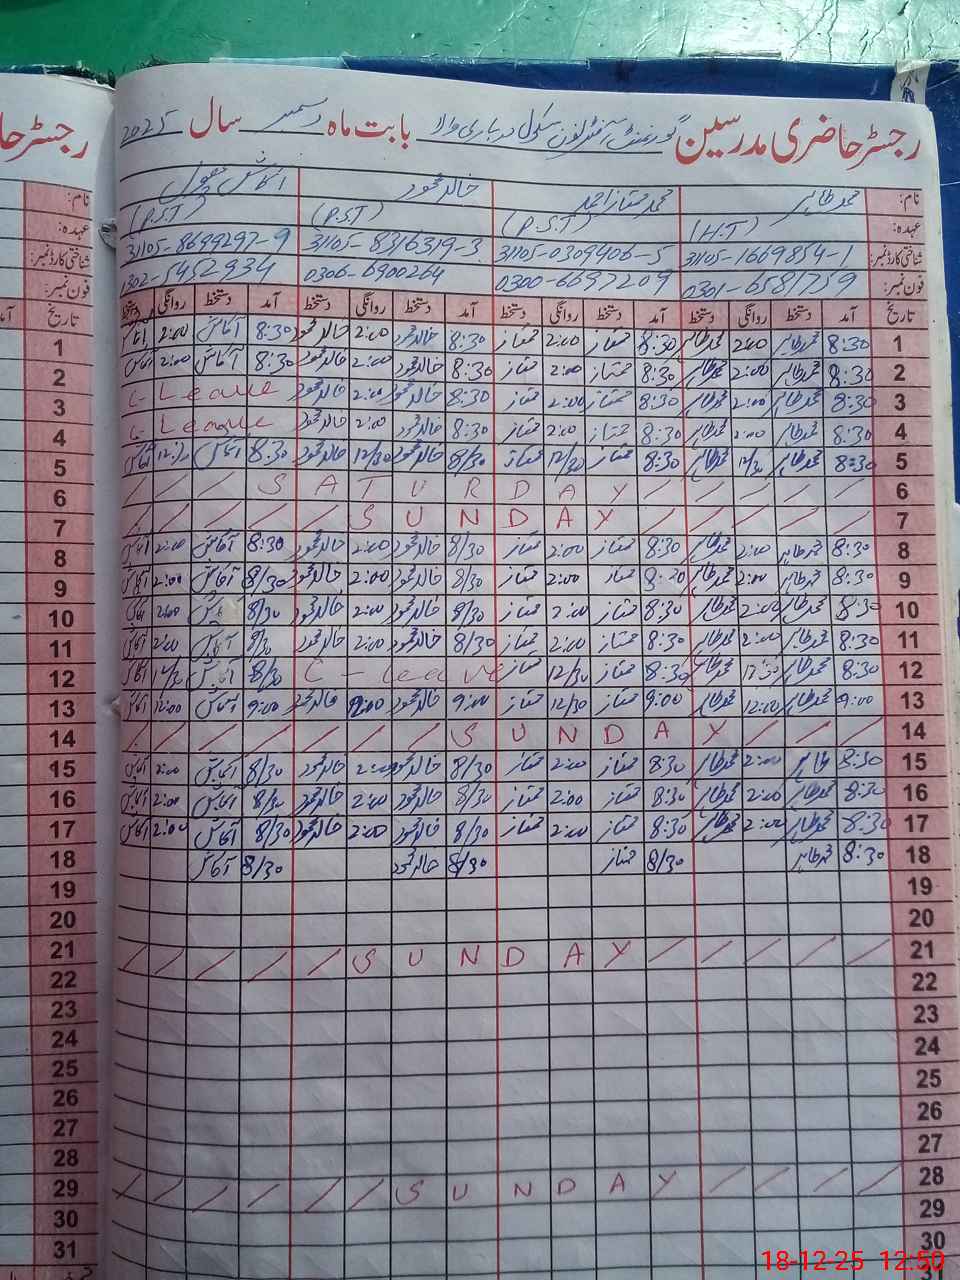 رجسٹر حاضری مدرسین گورنمنٹ سکول درباری والا بابت ماہ دسمبر سال 2025
نام: محمد طاہر محمد ممتاز احمد خالد محمود
عہدہ: (H.T) (P.S.T) (P.S.T) (P.S.T)
شناختی کارڈ نمبر: 31105-1669854-1 31105-0309406-5 31105-8316319-3 31105-8699297-9
فون نمبر: 0301-6581759 0300-6697209 0306-6900264 0302-5452934
تاریخ آمد دستخط روانگی دستخط آمد دستخط روانگی دستخط آمد دستخط روانگی دستخط آمد دستخط روانگی دستخط تاریخ
1 8:30 محمد طاہر 2:00 محمد طاہر 8:30 ممتاز 2:00 ممتاز 8:30 خالد محمود 2:00 خالد محمود 8:30 آکاش 2:00 آکاش 1
2 8:30 محمد طاہر 2:00 محمد طاہر 8:30 ممتاز 2:00 ممتاز 8:30 خالد محمود 2:00 خالد محمود 8:30 آکاش 2:00 آکاش 2
3 8:30 محمد طاہر 2:00 محمد طاہر 8:30 ممتاز 2:00 ممتاز 8:30 خالد محمود 2:00 خالد محمود C-Leave 3
4 8:30 محمد طاہر 2:00 محمد طاہر 8:30 ممتاز 2:00 ممتاز 8:30 خالد محمود 2:00 خالد محمود C-Leave 4
5 8:30 محمد طاہر 12/30 محمد طاہر 8:30 ممتاز 12/30 ممتاز 8/30 خالد محمود 12/30 خالد محمود 8:30 آکاش آکاش 5
6 SATURDAY 6
7 SUNDAY 7
8 8:30 محمد طاہر 2:00 محمد طاہر 8:30 ممتاز 2:00 ممتاز 8/30 خالد محمود 2:00 خالد محمود 8:30 آکاش 2:00 آکاش 8
9 8:30 محمد طاہر 2:00 محمد طاہر 8:30 ممتاز 2:00 ممتاز 8/30 خالد محمود 2:00 خالد محمود 8/30 آکاش 2:00 آکاش 9
10 8:30 محمد طاہر 2:00 محمد طاہر 8:30 ممتاز 2:00 ممتاز 8/30 خالد محمود 2:00 خالد محمود 8/30 آکاش 2:00 آکاش 10
11 8:30 محمد طاہر 2:00 محمد طاہر 8:30 ممتاز 2:00 ممتاز 8/30 خالد محمود 2:00 خالد محمود 8/30 آکاش 2:00 آکاش 11
12 8:30 محمد طاہر 12:30 محمد طاہر 8:30 ممتاز 12/30 ممتاز C-Leave 8/30 آکاش 12/30 آکاش 12
13 9:00 محمد طاہر 12:00 محمد طاہر 9:00 ممتاز 12/30 ممتاز 9:00 خالد محمود خالد محمود 9:00 آکاش 12:00 آکاش 13
14 SUNDAY 14
15 8:30 طاہر 2:00 محمد طاہر 8:30 ممتاز 2:00 ممتاز 8/30 خالد محمود 2:00 خالد محمود 8/30 آکاش 2:00 آکاش 15
16 8:30 محمد طاہر 2:00 محمد طاہر 8:30 ممتاز 2:00 ممتاز 8/30 خالد محمود 2:00 خالد محمود 8/30 آکاش 2:00 آکاش 16
17 8:30 محمد طاہر 2:00 محمد طاہر 8:30 ممتاز 2:00 ممتاز 8/30 خالد محمود 2:00 خالد محمود 8/30 آکاش 2:00 آکاش 17
18 8:30 محمد طاہر 8/30 ممتاز 8/30 خالد محمود 8/30 آکاش 18
19 19
20 20
21 SUNDAY 21
22 22
23 23
24 24
25 25
26 26
27 27
28 SUNDAY 28
29 29
30 30
31 31
18-12-25 12:50